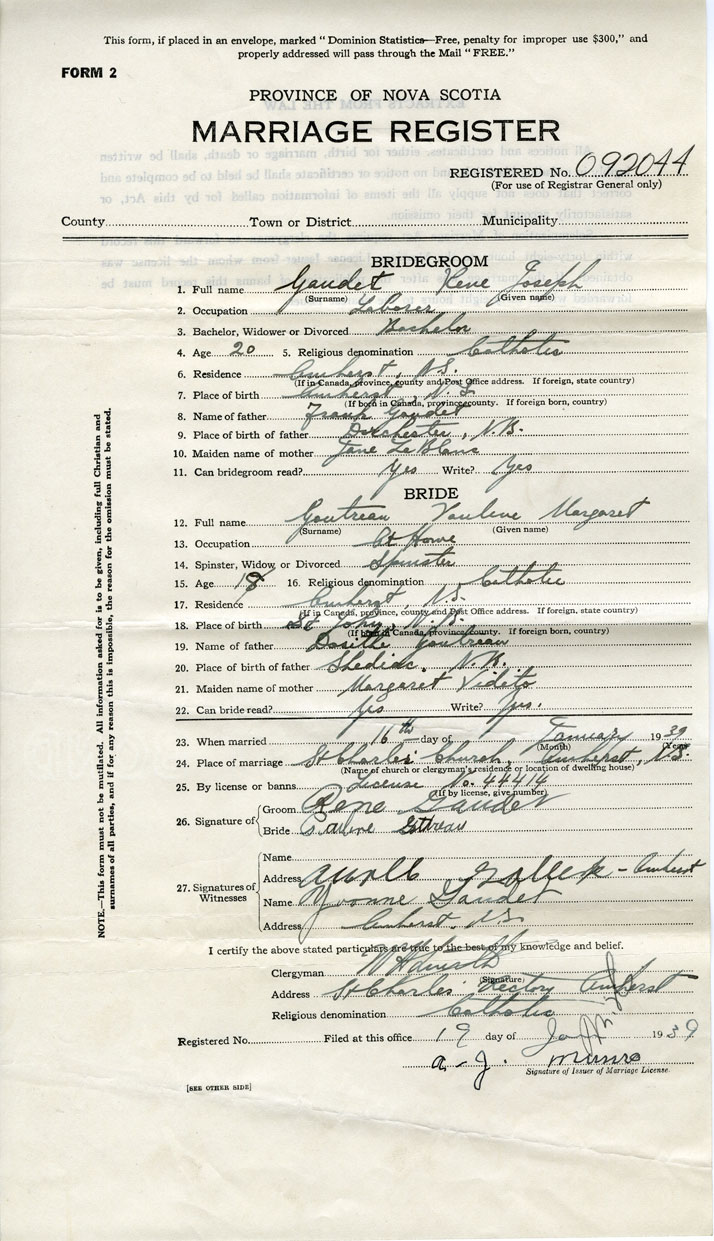 This form, if placed in an envelope, marked "Dominion Statistics—Free, penalty for improper use $300," and
properly addressed will pass through the Mail "FREE."
FORM 2
PROVINCE OF NOVA SCOTIA
MARRIAGE REGISTER
REGISTERED No. 092044
(For use of Registrar General only)
County Town or District Municipality
BRIDEGROOM
1. Full name Gaudet Rene Joseph
(Surname) (Given name)
2. Occupation Laborer
3. Bachelor, Widower or Divorced Bachelor
4. Age 20 5. Religious denomination Catholic
6. Residence Amherst, N.S.
(If in Canada, province, county and Post Office address. If foreign, state country)
7. Place of birth Amherst, N.S.
(If born in Canada, province, county. If foreign born, country)
8. Name of father Frank Gaudet
9. Place of birth of father Dorchester, N.B.
10. Maiden name of mother Jane LeBlanc
11. Can bridegroom read? Yes Write? Yes
BRIDE
12. Full name Goutreau Pauline Margaret
(Surname) (Given name)
13. Occupation At Home
14. Spinster, Widow or Divorced Spinster
15. Age 18 16. Religious denomination Catholic
17. Residence Amherst, N.S.
(If in Canada, province, county and Post Office address. If foreign, state country)
18. Place of birth St John, N.B.
(If born in Canada, province, county. If foreign born, country)
19. Name of father Dosithe Goutreau
20. Place of birth of father Shediac, N.B.
21. Maiden name of mother Margaret Vidito
22. Can bride read? Yes Write? Yes.
23. When married 16th day of January 1939
(Month) (Year)
24. Place of marriage St Charles' Church, Amherst, N.S.
(Name of church or clergyman's residence or location of dwelling house)
25. By license or banns License No. 44414
(If by license, give number)
26. Signature of Groom Rene Gaudet
Bride
27. Signatures of Witnesses
Name
Address - Amherst
Name Yvonne Gaudet
Address Amherst, N.S.
I certify the above stated particulars are true to the best of my knowledge and belief.
Clergyman
(Signature)
Address St Charles' Rectory Amherst
Religious denomination Catholic
Registered No. Filed at this office 19 day of Jany 1939
A. J. Munro
Signature of Issuer of Marriage License.
[SEE OTHER SIDE]
NOTE.—This form must not be mutilated. All information asked for is to be given, including full Christian and
surnames of all parties, and if for any reason this is impossible, the reason for the omission must be stated.